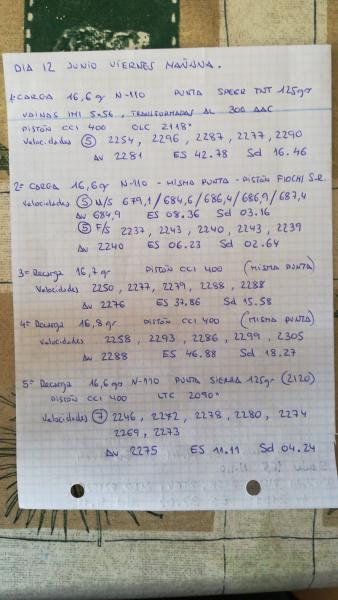 DIA 12 JUNIO VIERNES MAÑANA.
1ª CARGA 16,6 gr N-110 PUNTA SPEER TNT 125gr
VAINAS IMI 5.56, TRANSFORMADAS AL 300 AAC
PISTÓN CCI 400 OLC 2118"
Velocidades (5) 2254, 2296, 2287, 2277, 2290
Av 2281 ES 42.78 Sd 16.46
2ª CARGA 16,6gr N-110 - MISMA PUNTA - PISTÓN FIOCHI S.R.
Velocidades (5) M/S 679,1/684,6/686,4/686,9/687,4
Av 684,9 ES 08.36 Sd 03.16
(5) F/S 2237, 2243, 2240, 2243, 2239
Av 2240 ES 06.23 Sd 02.64
3ª Recarga 16,7gr PISTÓN CCI 400 (MISMA PUNTA)
Velocidades 2250, 2277, 2279, 2288, 2288
Av 2276 ES 37.86 Sd 15.58
4ª Recarga 16,8 gr PISTÓN CCI 400 (MISMA PUNTA)
Velocidades 2258, 2293, 2286, 2299, 2305
Av 2288 ES 46.88 Sd 18.27
5ª Recarga 16,6 grs N-110 PUNTA SIERRA 125gr (2120)
PISTÓN CCI 400 LTC 2090"
Velocidades (7) 2246, 2272, 2278, 2280, 2274
2269, 2273
Av 2275 ES 11.11 Sd 04.24